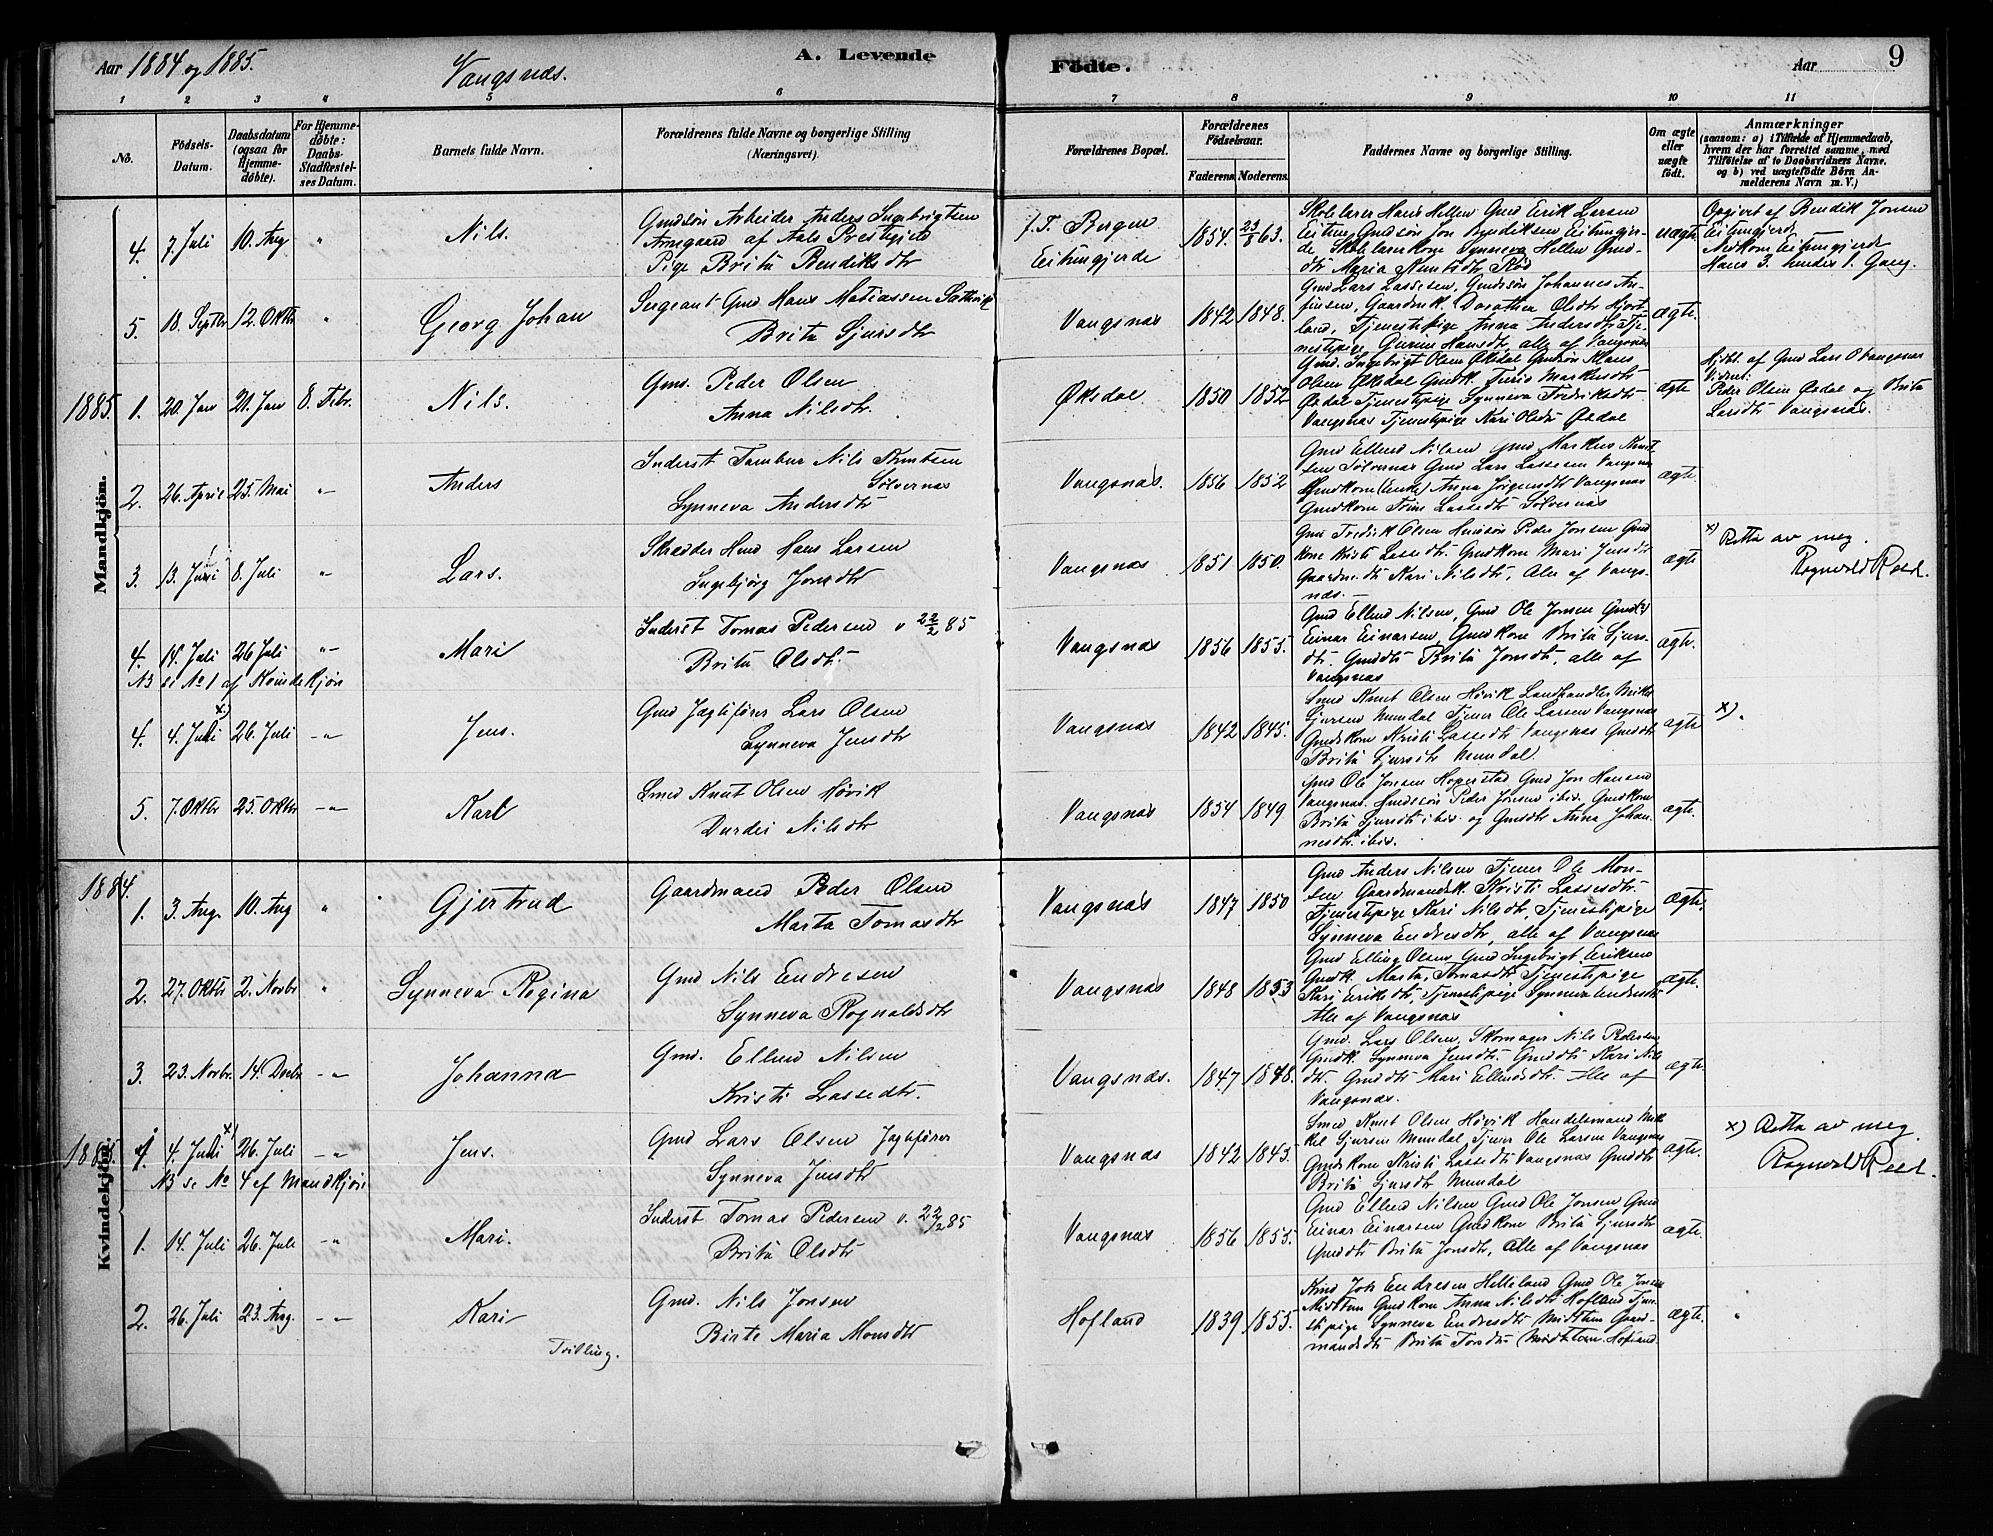 Aar 1884 og 1885.
Vangsnæs.
A. Levende
Fødte.
Aar
9
1 2 3 4 5 6 7 8 9 10 11
No.
Fødsels-
Datum.
Daabsdatum
(ogsaa for
Hjemme-
døbte).
For Hjemme-
døbte:
Daabs-
Stadfæstel-
ses Datum.
Barnets fulde Navn.
Forældrenes fulde Navne og borgerlige Stilling
(Næringsvei).
Forældrenes Bopæl.
Forældrenes
Fødselsaar.
Faderens. Moderens.
Faddernes Navne og borgerlige Stilling.
Om ægte
eller
uægte
født.
Anmærkninger
(saasom: a) i Tilfælde af Hjemmedaab,
hvem der har forrettet samme, med
Tilføielse af to Daabsvidners Navne.
og b) ved uægtefødte Børn An-
melderens Navn m. V.)
Mandkjøn.
4. 7 Juli 10. Aug " Nils.
Gmdsön Arbeider Anders Ingebrigtsen
af Aals Prestegjeld
Pige Brita Bendiksdtr
f. T. Bergen
Eitungjerde
1854. 23/8 63.
Skolelærer Hans Hellen Gmd Erik Larsen
Eitung Gmdsön Jon Bendiksen Eitungjer-
de Skolelærerkone Synneva Hellen Gmd-
dtr Maria Knutsdtr Röd
uægte
Opgivet af Bendik Jonsen
Eitungjerde
Hans 3. hendes 1. Gang.
5. 18. Septbr 12. Oktbr " Georg Johan
Sergeant Gmd Hans Matiassen
Brita Sjursdtr
Vangsnæs 1842 1848.
Gmd Lars Lassesen, Gmdsön Johannes An-
finsen, Gaardmk. Dorothea Olsdtr Hjort-
land, Tjenestepige Anna Andersdtr Tje-
nestepige Gurine Hansdtr, alle af Vangsnæs
ægte.
1885. 1. 20. Jan 21. Jan 8. Febr. Nils.
Gmd. Peder Olsen
Anna Nilsdtr.
Øksdal 1850 1852
Gmd. Ingebrigt Olsen Øksdal Gmdsön Klaus
Olsen Øksdal Gmdk. Turid Markusdtr
Øksdal Tjenestepige Synneva Fredriksdtr
Vangsnæs Tjenestepige Kari Olsdtr Øksdal
ægte
Hjdbt. af Gmd Lars O Vangsnæs
Vidner:
Peder Olsen Øxdal og Brita
Larsdtr Vangsnæs.
2. 26. April 25. Mai -"- Anders
Inderst Tambur Nils Knutsen
Sölvernæs
Synneva Andersdtr
Vangsnæs. 1856 1852
Gmd Ellend Nilsen Gmd Markus Knut-
sen Sölvernæs Gmd Lars Lassesen Vangsnæs
Gmdkone (Enke) Anna Jörgendtr Vangsnæs
Gmdkone Trine Lassedtr Sölvernæs
ægte.
3. 13. Juni 8. Juli " Lars.
Skredder Hmd Hans Larsen
Ingebjörg Jonsdtr
Vangsnæs 1851 1850.
Gmd Fredrik Olsen Husmsön Peder Jonsen Gmd
kone Kristi Lassedtr. Gmdkone Mari Jensdtr
Gaardm.dtr Kari Nilsdtr, Alle af Vangs-
næs.-
ægte
x) Retta av meg.
Rognvald Reed.
4. 14. Juli 26 Juli "- Mari
NB se No 1 af Kvindekjön
Inderst Tomas Pedersen v 22/2 85
Brita Olsdtr.
Vangsnæs 1856 1855.
Gmd Ellend Nilsen, Gmd Ole Jonsen Gmd
Einar Einarsen, Gmdkone Brita Sjurs-
dtr. Gmddtr Brita Jonsdtr, alle af
Vangsnæs
ægte.
x)
4. 4. Juli 26. Juli -"- Jens.
Gmd Jægtefører Lars Olsen
Synneva Jensdtr
Vangsnæs 1842 1845.
Smed Knut Olsen Hövik Landhandler Mikkel
Sjursen Mundal Tjener Ole Larsen Vangsnæs
Gmdskone Kristi Lassedtr Vangsnæs Gmddtr
Brita Sjursdtr Mundal
ægte
x).
5. 7. Oktbr 25. Oktbr -"- Karl
Smed Knut Olsen Hövik
Durdei Nilsdtr
Vangsnæs 1854 1849
Gmd Ole Jonsen Hoperstad Gmd Jon Hansen
Vangsnæs. Gmdssön Peder Jonsen ibid. Gmdkone
Brita Sjursdtr ibid. og Gmddtr Anna Johan-
nesdtr. ibid.
ægte.
1884.
Kvindekjøn.
1. 3. Aug. 10. Aug " Gjertrud
Gaardmand Peder Olsen
Marta Tomasdtr
Vangsnæs 1847 1850
Gmd Anders Nilsen Tjener Ole Mon-
sen Gaardmandsk. Kristi Lassesdtr.
Tjenestepige Kari Nilsdtr, Tjenestepige
Synneva Endresdtr, alle af Vangsnæs
ægte.
2. 27. Oktbr 2. Novbr " Synneva Regina
Gmd Nils Endresen
Synneva Rognaldsdtr
Vangsnæs 1848 1853
Gmd Elling Olsen Gmd Ingebrigt Eriksen
Gmdk. Marta Tomasdtr Tjenestepige
Kari Eriksdtr, Tjenestepige Synneva Endresdtr
Alle af Vangsnæs
ægte.
3. 23. Novbr. 14. Decbr -"- Johanna
Gmd. Ellend Nilsen
Kristi Lassedtr.
Vangsnæs. 1847 1848.
Gmd. Lars Olsen, Skomager Nils Pedersen
Gmdk. Synneva Jensdtr. Gmddtr Kari Nils-
dtr. Gmddtr Mari Ellendsdtr. Alle af
Vangsnæs.
ægte.
1885. 4. Juli x) 26. Juli -"- Jens.
NB se No 4 af Mandkjön
Gmd Lars Olsen Jagtefører
Synneva Jensdtr
Vangsnæs 1842 1845.
Smed Knut Olsen Hövik Handelsmand Mik-
kel Sjursen Mundal, Tjener Ole Larsen Vangsnæs
Gmdskone Kristi Lassedtr Vangsnæs Gmddtr
Brita Sjursdtr Mundal
ægte.
x) Retta av meg.
Rognvald Reed.
1. 14. Juli 26. Juli -"- Mari.
Inderst Tomas Pedersen v. 22/2 85
Brita Olsdtr
Vangsnæs 1856 1855.
Gmd Ellend Nilsen Gmd Ole Jonsen Gmd
Einar Einarsen Gmdkone Brita Sjursdtr
Gmddtr Brita Jonsdtr, alle af Vangsnæs
ægte.
2. 26. Juli 23. Aug. -"- Kari
Tvilling.
Gmd. Nils Jonsen
Birte Maria Monsdtr
Hofland 1839 1855.
Gmd Joh Endresen Helleland Gmd Ole Jonsen
Midttun Gmdkone Anna Nilsdtr Hofland Tjene-
stepige Synneva Endresdtr Midttun Gaard-
mandsdtr Brita Tordtr Midttun Hofland
ægte. "